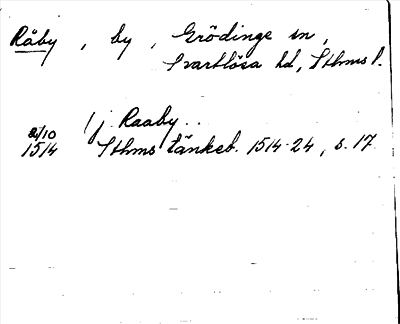 Råby, by, Grödinge sn,
Svartlösa hd, Sthms l.
i j Raaby..
2/10
1514 Sthms tänkeb. 1514-24, s. 17